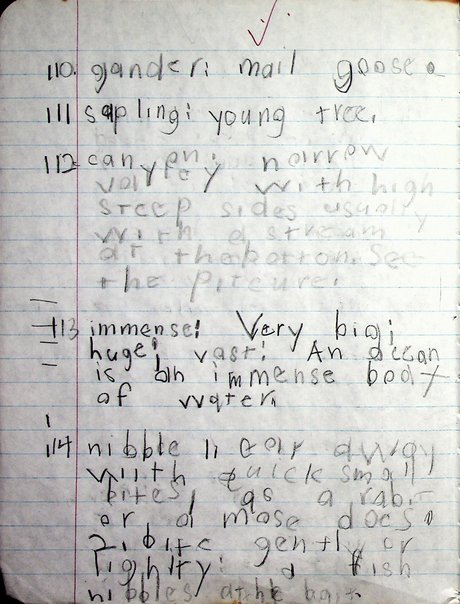 110. gander: mail goose.
111 sapling: young tree.
112 canyon: narrow
valley with high
steep sides usually
with a stream
at the botton. See
the pitcure.
113 immense: Very big;
huge; vast: An ocean
is an immense body
of water.
114 nibble 1: eat away
with quick small
bites, as a rabit
or a mose does.
2. bite gently or
lightly: a fish
nibbles at the bait.